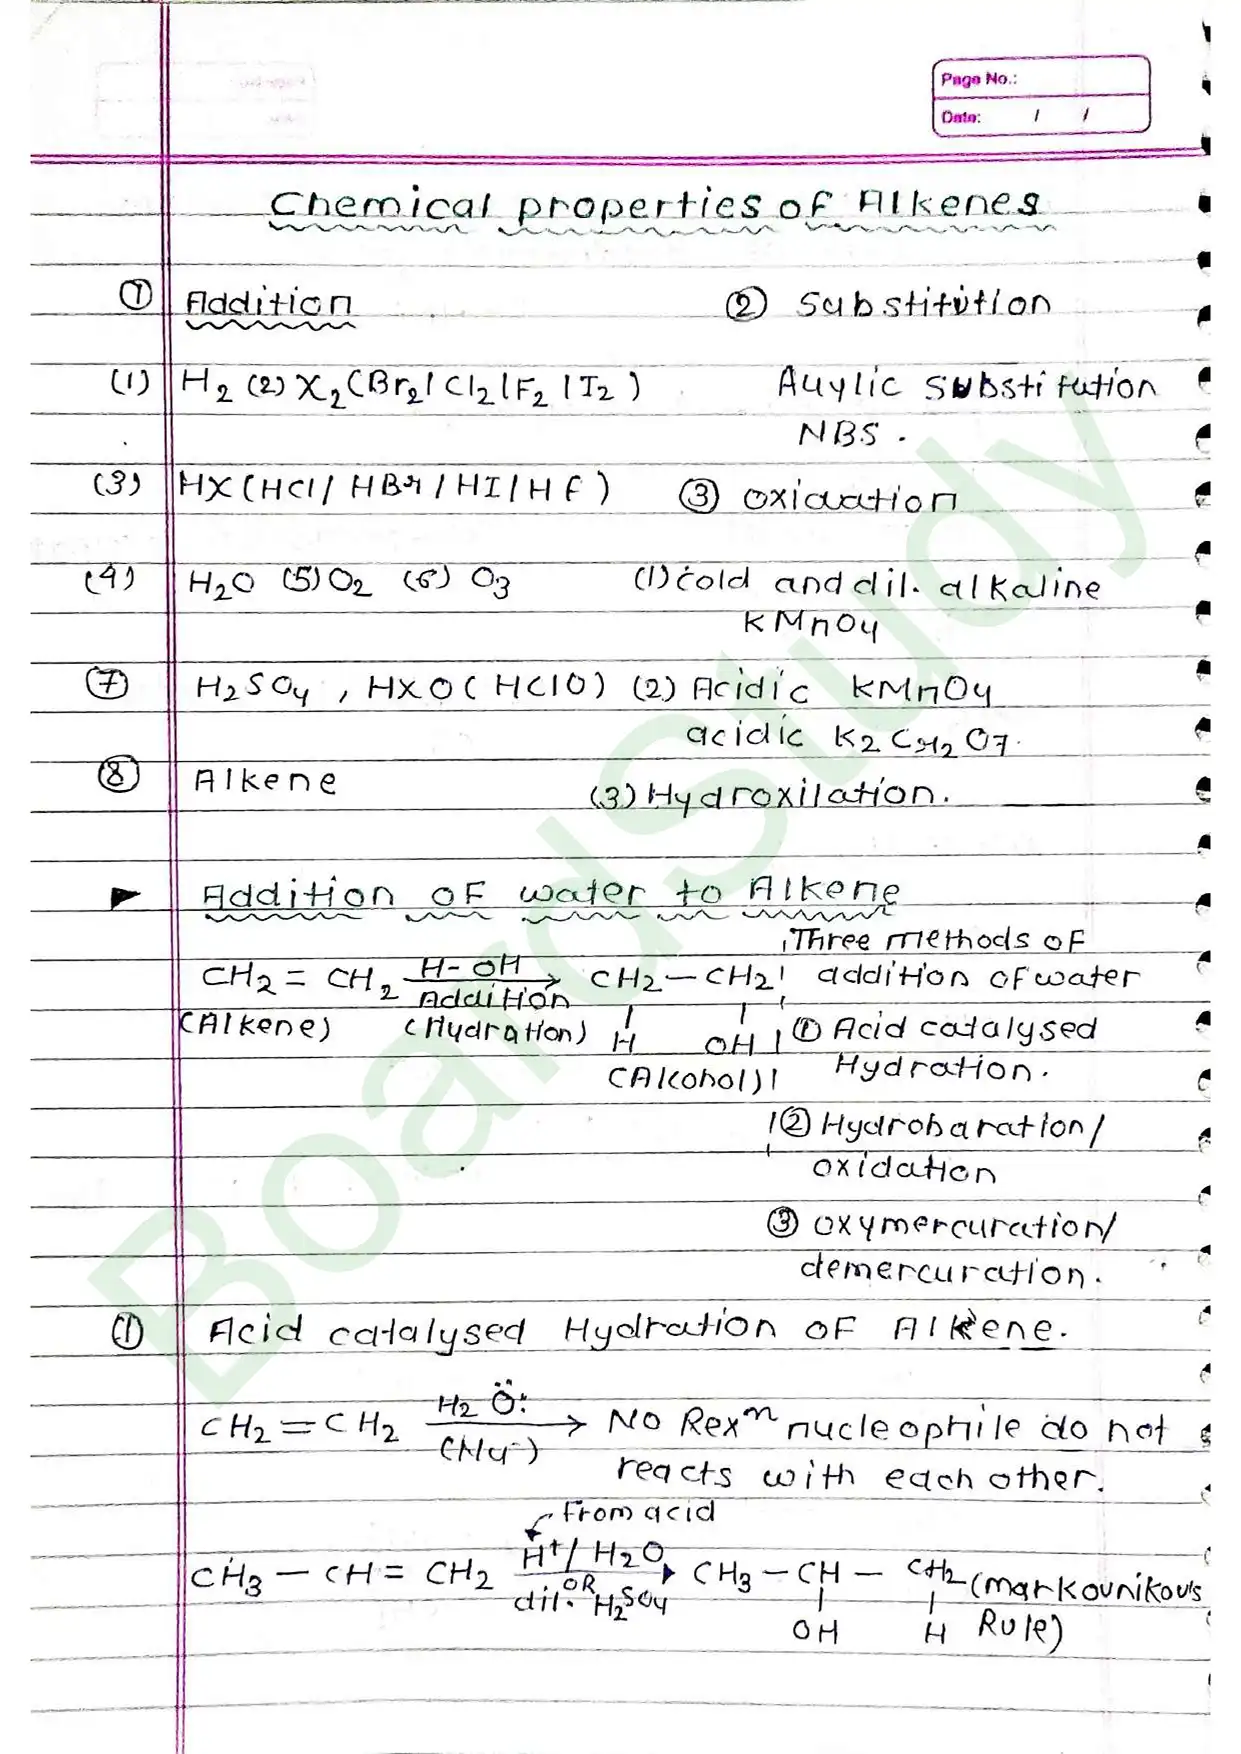 Page No.:
Date: / /
Chemical properties of Alkenes
① Addition ② Substitution
(1) H2 (2) X2 (Br2/Cl2/F2/I2) Allylic Substitution
NBS.
(3) HX (HCl/HBr/HI/HF) ③ oxidation
(4) H2O (5) O2 (6) O3 (1) cold and dil. alkaline
KMnO4
⑦ H2SO4, HXO (HClO) (2) Acidic KMnO4
acidic K2Cr2O7.
⑧ Alkene (3) Hydroxilation.
▶ Addition of water to Alkene
Three methods of
CH2 = CH2 H-OH Addition → CH2 — CH2 addition of water
(Alkene) (Hydration) H OH ① Acid catalysed
(Alcohol) Hydration.
② Hydrobaration/
oxidation
③ oxymercuration/
demercuration.
① Acid catalysed Hydration of Alkene.
CH2 = CH2 H2Ö: (Nu-) → No Rexn nucleophile do not
reacts with each other.
From acid
CH3 — CH = CH2 H+/H2O OR dil. H2SO4 → CH3 — CH — CH2 (markovnikov's
OH H Rule)
BoardStudy